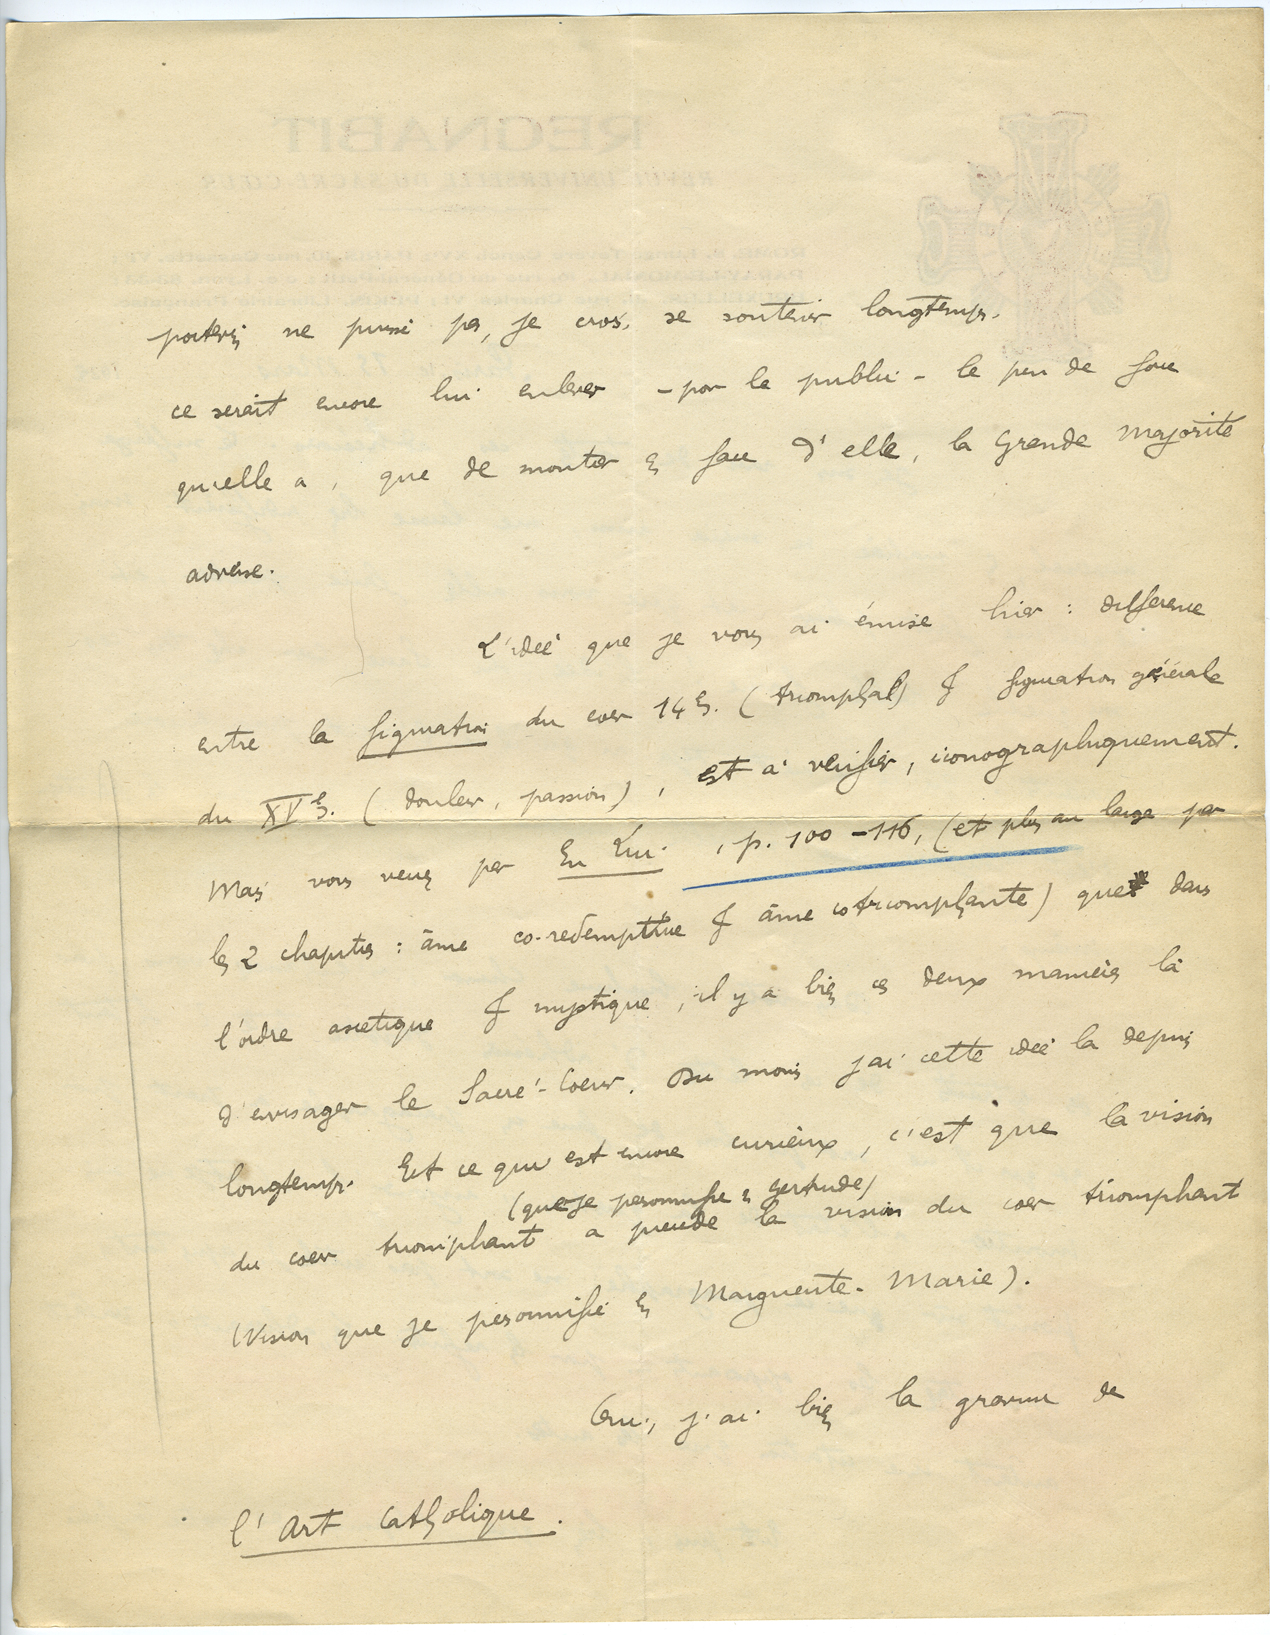 ne puisse pas, je crois, se soutenir longtemps.
ce serait encore lui enlever - pour le public - le peu de force
qu'elle a, que de montrer en face d'elle, la Grande Majorité
adverse.
L'idée que je vous ai émise hier : différence
entre la figuration du coeur 14e s. (triomphal) & figuration générale
du XVe s. (douleur, passion), est à vérifier, iconographiquement.
Mais vous verrez par En Lui, p. 100-116, (et plus au large par
les 2 chapitres : âme co-rédemptrice & âme co-triomphante) que dans
l'ordre ascétique & mystique, il y a bien ces deux manières là
d'envisager le Sacré-Coeur. Du moins j'ai cette idée là depuis
longtemps. Et ce qui est encore curieux, c'est que la vision
(que je personnifie en Gertrude)
du coeur triomphant a précédé la vision du coeur triomphant
(Vision que je personnifie en Marguerite-Marie).
Oui, j'ai bien la gravure de
l'Art Catholique.
REGNABIT
REVUE UNIVERSELLE DU SACRÉ-CŒUR